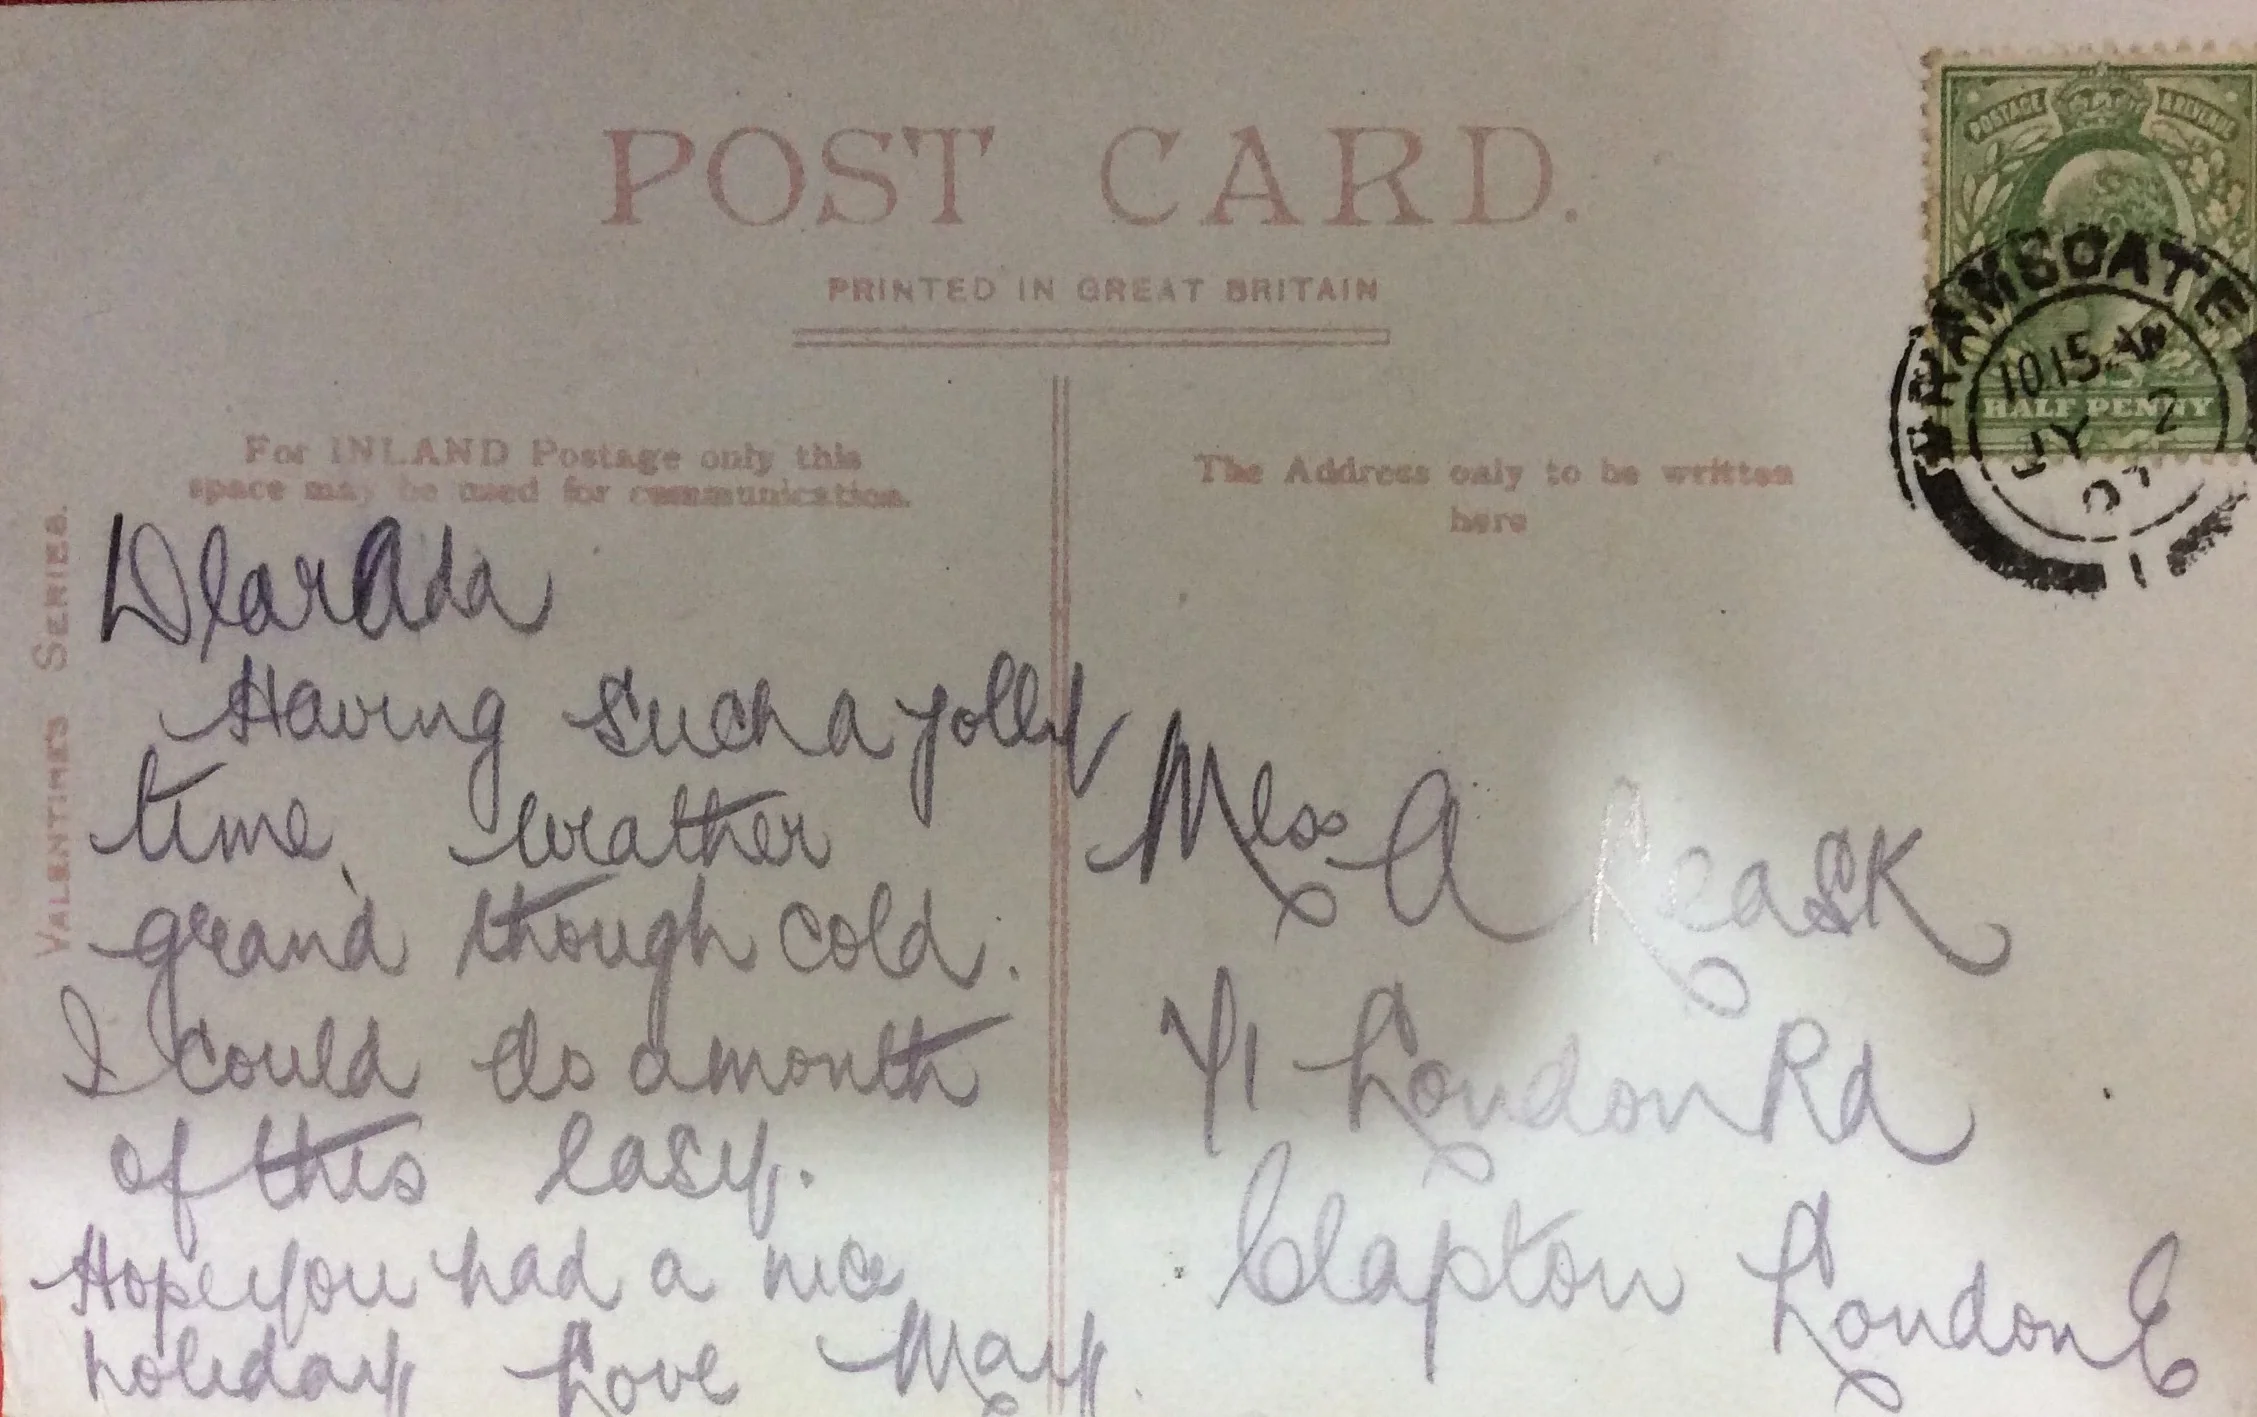 POST CARD.
PRINTED IN GREAT BRITAIN
POSTAGE REVENUE
HALF PENNY
RAMSGATE
1015 AM
JY 2
07
For INLAND Postage only this
space may be used for communication.
The Address only to be written
here
VALENTINES SERIES.
Dear Ada
Having such a jolly
time, weather
grand though cold.
I could do a month
of this easy.
Hope you had a nice
holiday Love May.
Miss A Reask
71 London Rd
Clapton London E